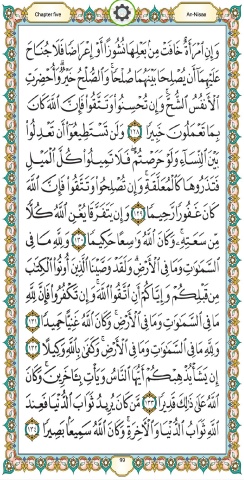 Chapter five
An-Nisaa
وَإِنِ ٱمْرَأَةٌ خَافَتْ مِنۢ بَعْلِهَا نُشُوزًا أَوْ إِعْرَاضًا فَلَا جُنَاحَ
عَلَيْهِمَآ أَن يُصْلِحَا بَيْنَهُمَا صُلْحًا ۚ وَٱلصُّلْحُ خَيْرٌ ۗ وَأُحْضِرَتِ
ٱلْأَنفُسُ ٱلشُّحَّ ۚ وَإِن تُحْسِنُوا۟ وَتَتَّقُوا۟ فَإِنَّ ٱللَّهَ كَانَ
بِمَا تَعْمَلُونَ خَبِيرًا ١٢٨ وَلَن تَسْتَطِيعُوٓا۟ أَن تَعْدِلُوا۟
بَيْنَ ٱلنِّسَآءِ وَلَوْ حَرَصْتُمْ ۖ فَلَا تَمِيلُوا۟ كُلَّ ٱلْمَيْلِ
فَتَذَرُوهَا كَٱلْمُعَلَّقَةِ ۚ وَإِن تُصْلِحُوا۟ وَتَتَّقُوا۟ فَإِنَّ ٱللَّهَ
كَانَ غَفُورًا رَّحِيمًا ١٢٩ وَإِن يَتَفَرَّقَا يُغْنِ ٱللَّهُ كُلًّا
مِّن سَعَتِهِۦ ۚ وَكَانَ ٱللَّهُ وَٰسِعًا حَكِيمًا ١٣٠ وَلِلَّهِ مَا فِى
ٱلسَّمَٰوَٰتِ وَمَا فِى ٱلْأَرْضِ ۗ وَلَقَدْ وَصَّيْنَا ٱلَّذِينَ أُوتُوا۟ ٱلْكِتَٰبَ
مِن قَبْلِكُمْ وَإِيَّاكُمْ أَنِ ٱتَّقُوا۟ ٱللَّهَ ۚ وَإِن تَكْفُرُوا۟ فَإِنَّ لِلَّهِ
مَا فِى ٱلسَّمَٰوَٰتِ وَمَا فِى ٱلْأَرْضِ ۚ وَكَانَ ٱللَّهُ غَنِيًّا حَمِيدًا ١٣١
وَلِلَّهِ مَا فِى ٱلسَّمَٰوَٰتِ وَمَا فِى ٱلْأَرْضِ ۚ وَكَفَىٰ بِٱللَّهِ وَكِيلًا ١٣٢
إِن يَشَأْ يُذْهِبْكُمْ أَيُّهَا ٱلنَّاسُ وَيَأْتِ بِـَٔاخَرِينَ ۚ وَكَانَ
ٱللَّهُ عَلَىٰ ذَٰلِكَ قَدِيرًا ١٣٣ مَّن كَانَ يُرِيدُ ثَوَابَ ٱلدُّنْيَا فَعِندَ
ٱللَّهِ ثَوَابُ ٱلدُّنْيَا وَٱلْءَاخِرَةِ ۚ وَكَانَ ٱللَّهُ سَمِيعًۢا بَصِيرًا ١٣٤
99